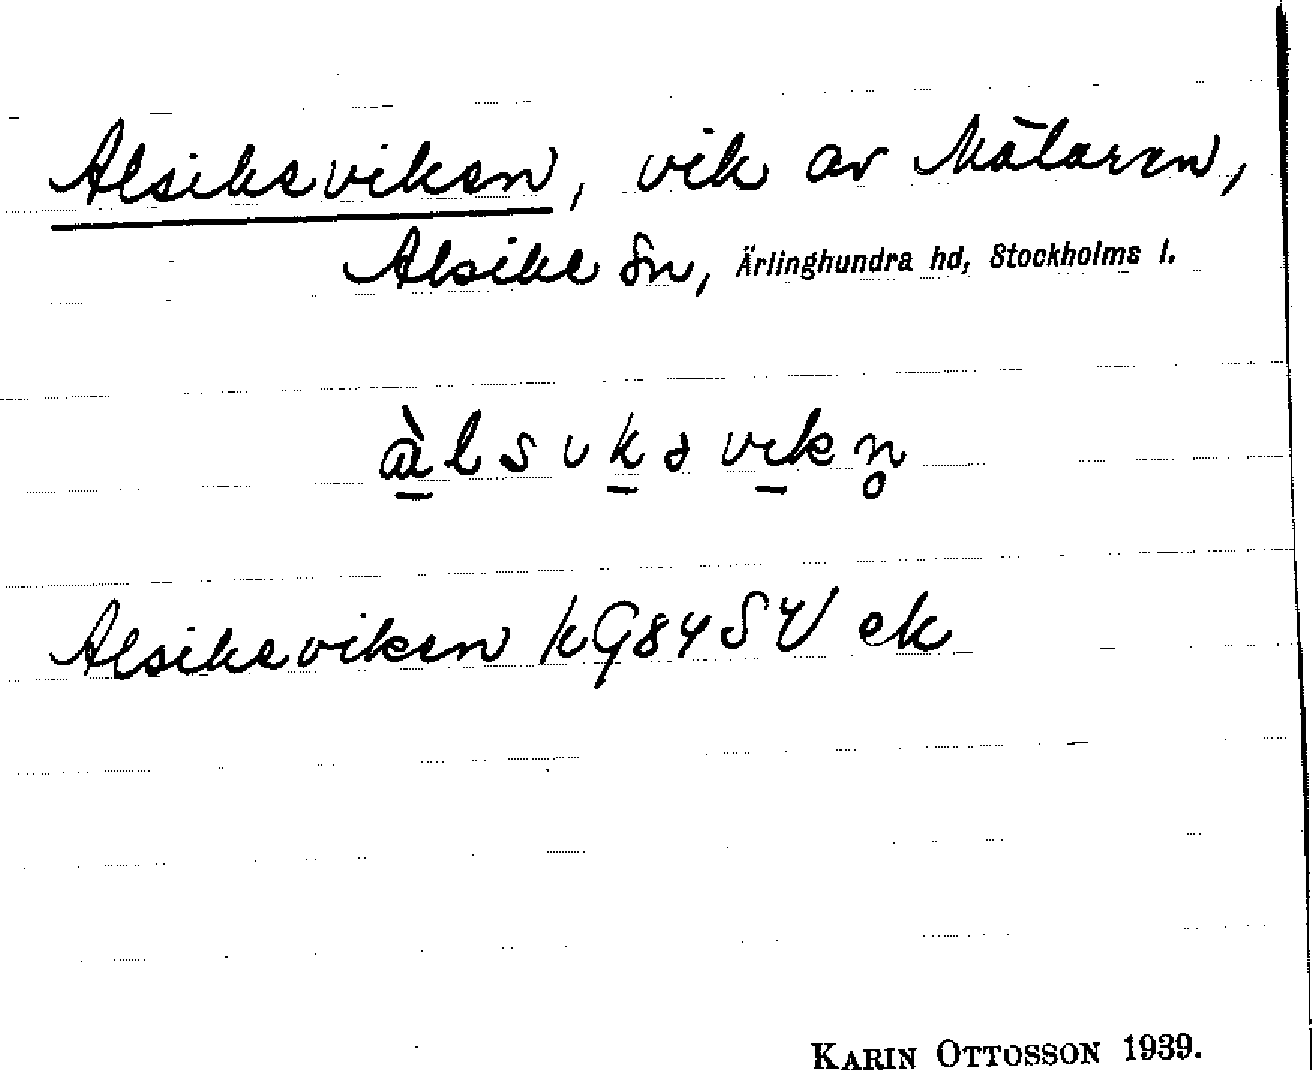 Alsikeviken, vik av Mälaren,
Alsike sn, Ärlinghundra hd, Stockholms l.
àlsıkə vikn̥
Alsikeviken kG84SV ek
KARIN OTTOSSON 1939.